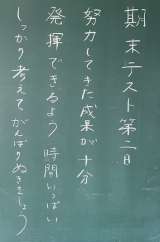 期末テスト第二日
努力してきた成果が十分
発揮できるよう 時間いっぱい
しっかり考えて がんばりぬきましょう